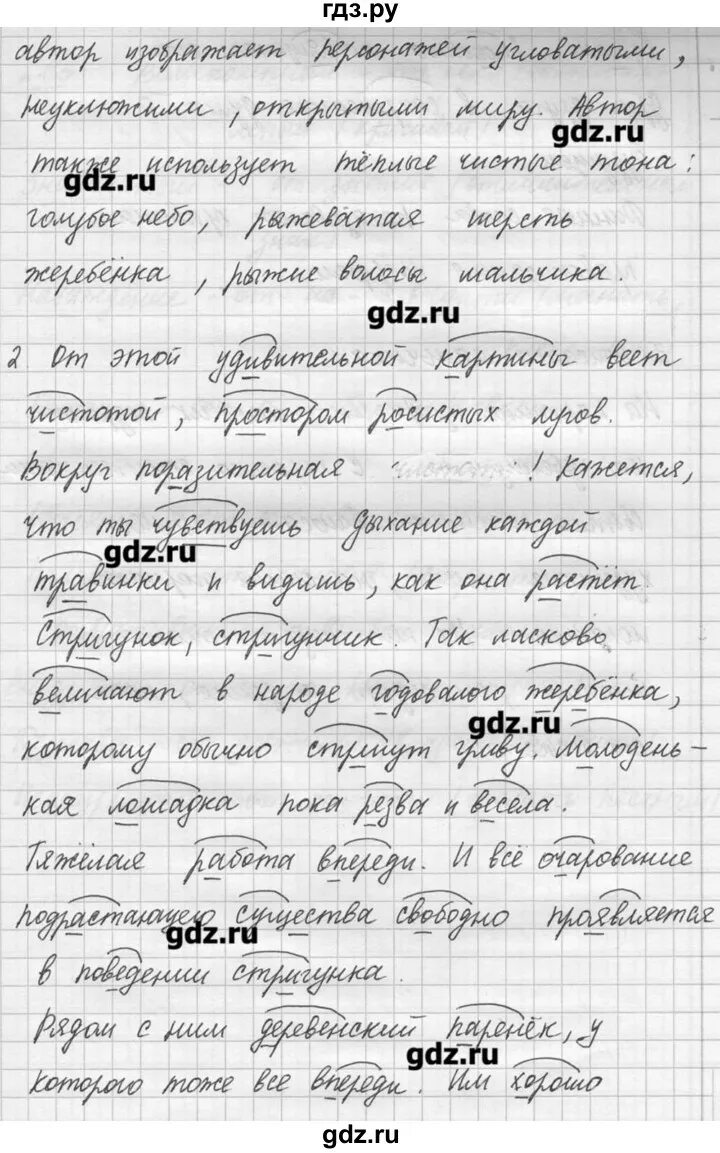 гдз.ру
автор изображает персонажей угловатыми,
неуклюжими, открытыми миру. Автор
gdz.ru
также использует тёплые чистые тона:
gdz.ru
голубое небо, рыжеватая шерсть
жеребёнка, рыжие волосы мальчика.
gdz.ru
2 От этой удивительной картины веет
чистотой, простором росистых лугов.
Вокруг поразительная ! Кажется,
что ты чувствуешь дыхание каждой
gdz.ru
травинки и видишь, как она растёт.
Стригунок, стригунчик. Так ласково
величают в народе годовалого жеребёнка,
gdz.ru
которому обычно стригут гриву. Молодень-
кая лошадка пока резва и весела.
Тяжёлая работа впереди. И всё очарование
подрастающего существа свободно проявляется
gdz.ru
в поведении стригунка.
Рядом с ним деревенский паренёк, у
gdz.ru
которого тоже все впереди. Им хорошо
gdz.ru